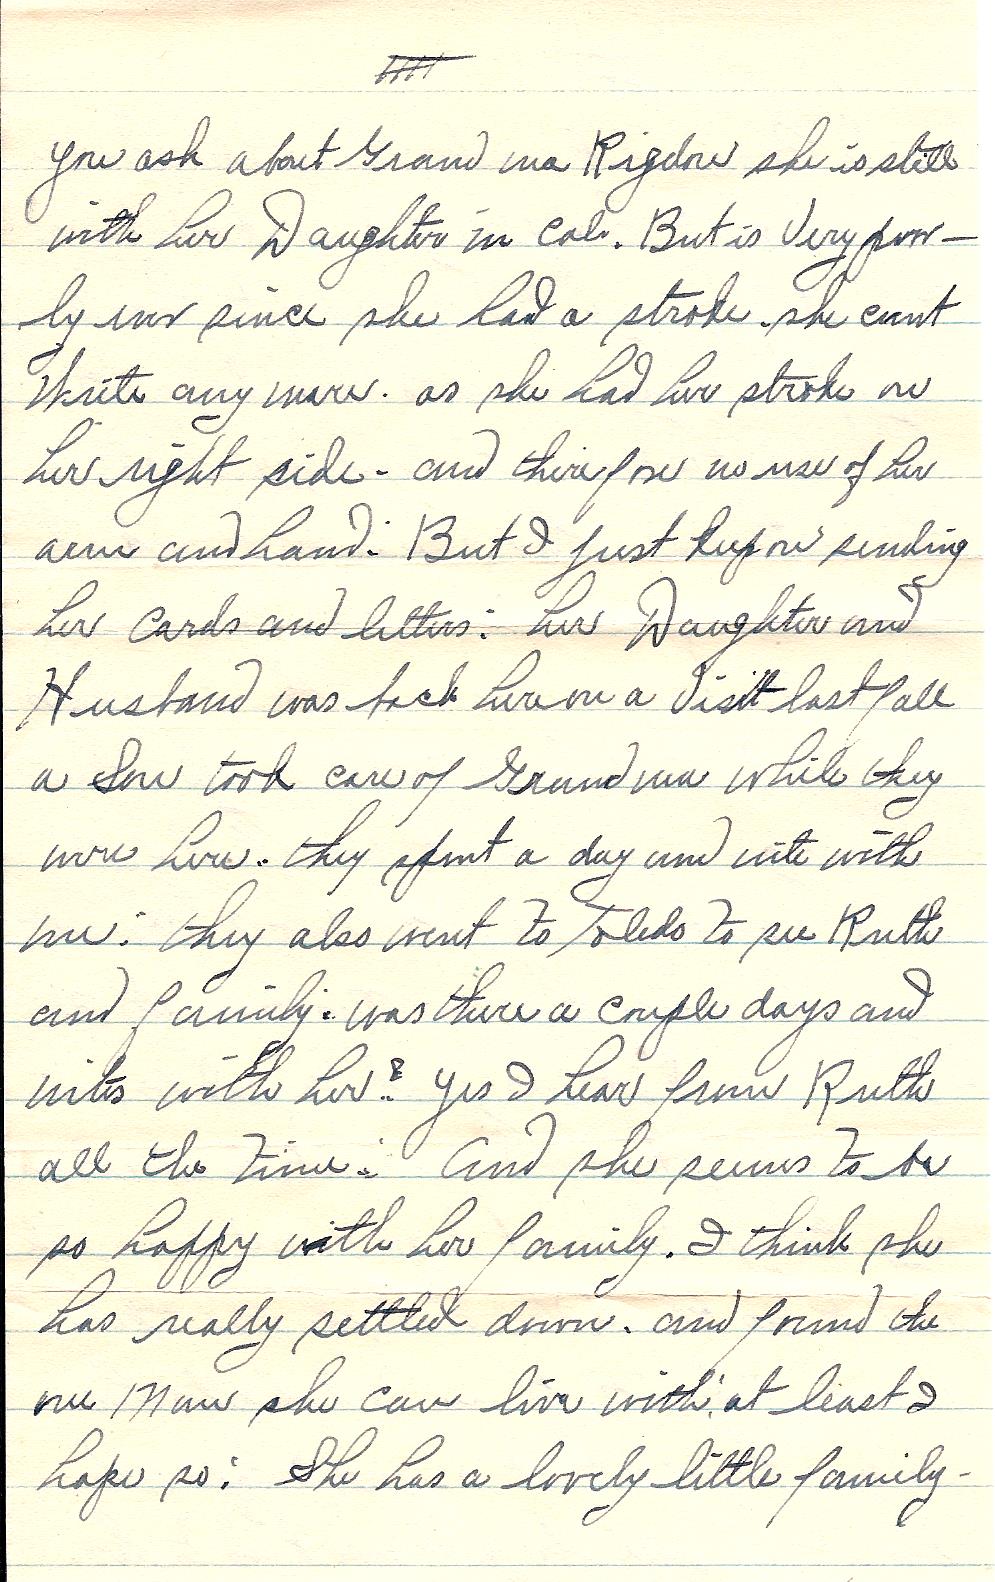 you ask about Grand ma Rigdon she is still
with her Daughter in Cal. But is Very poor-
ly now since she had a stroke. she cant
Write any more. as she had her stroke on
her right side - and therefore no use of her
arm and hand: But I just keep on sending
her Cards and letters: her Daughter and
Husband was back here on a Visit last fall
a Son took care of Grand ma while they
were here. they spent a day and nite with
me: they also went to Toledo to see Ruth
and family: was there a couple days and
nites with her: yes I hear from Ruth
all the time: And she seems to be
so happy with her family. I think she
has really settled down. and found the
one Man she can live with: at least I
hope so: She has a lovely little family-